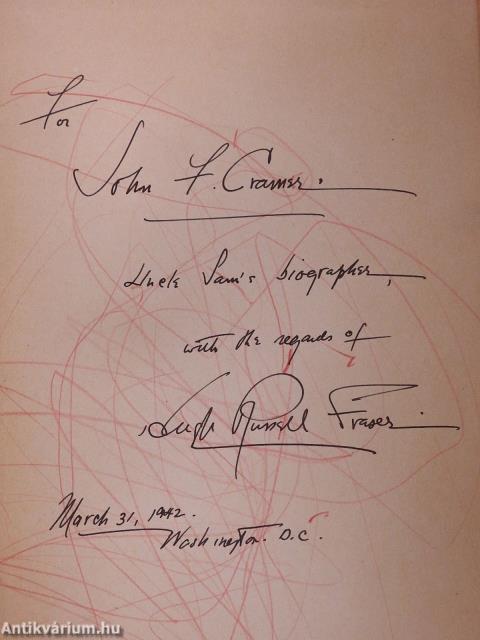 For
John F. Cramer.
Uncle Sam's biographer,
with the regards of
Hugh Russell Fraser.
March 31, 1942.
Washington. D.C.
Antikvárium.hu